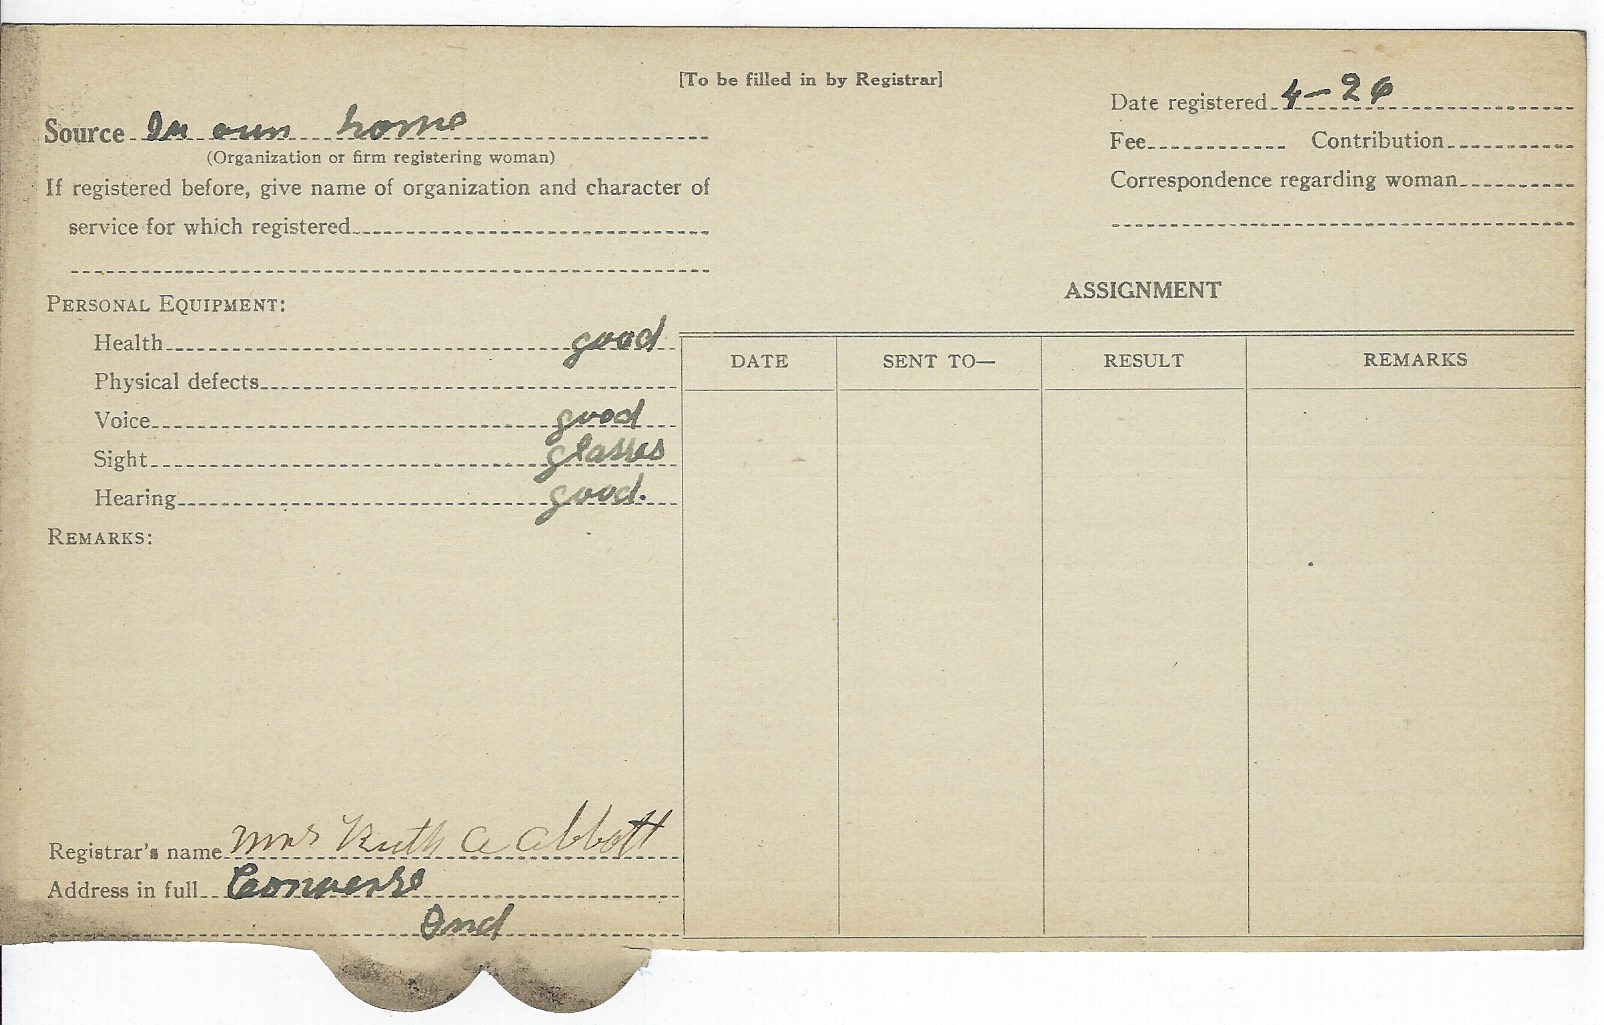 [To be filled in by Registrar]
Source In own home
(Organization or firm registering woman)
If registered before, give name of organization and character of
service for which registered
Date registered 4-26
Fee Contribution
Correspondence regarding woman
PERSONAL EQUIPMENT:
Health good
Physical defects
Voice good
Sight glasses
Hearing good.
REMARKS:
Registrar's name Mrs Ruth A Abbott
Address in full Converse
Ind
ASSIGNMENT
DATE SENT TO— RESULT REMARKS